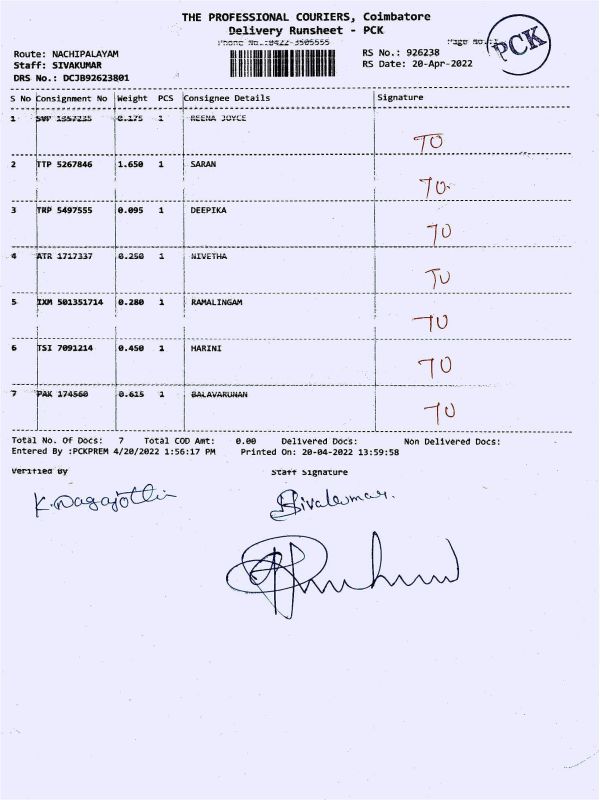 THE PROFESSIONAL COURIERS, Coimbatore
Delivery Runsheet - PCK
Phone No.:0422-3505555
Page No.:1
PCK
Route: NACHIPALAYAM
Staff: SIVAKUMAR
DRS No.: DCJB92623801
RS No.: 926238
RS Date: 20-Apr-2022
S No Consignment No Weight PCS Consignee Details Signature
1 SVP 1357235 0.175 1 REENA JOYCE TO
2 TTP 5267846 1.650 1 SARAN TO
3 TRP 5497555 0.095 1 DEEPIKA TO
4 ATR 1717337 0.250 1 NIVETHA TO
5 IXM 501351714 0.280 1 RAMALINGAM TO
6 TSI 7091214 0.450 1 HARINI TO
7 PAK 174560 0.615 1 BALAVARUNAN TO
Total No. Of Docs: 7 Total COD Amt: 0.00 Delivered Docs: Non Delivered Docs:
Entered By :PCKPREM 4/20/2022 1:56:17 PM Printed On: 20-04-2022 13:59:58
Verified By Staff Signature
K. Nagajothi Sivakumar.